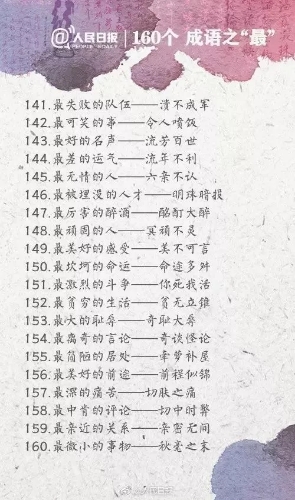 @人民日报 160个 成语之“最”
PEOPLE'S DAILY
141.最失败的队伍——溃不成军
142.最可笑的事——令人喷饭
143.最好的名声——流芳百世
144.最差的运气——流年不利
145.最无情的人——六亲不认
146.最被埋没的人才——明珠暗投
147.最厉害的醉酒——酩酊大醉
148.最顽固的人——冥顽不灵
149.最美好的感受——美不可言
150.最坎坷的命运——命途多舛
151.最激烈的斗争——你死我活
152.最贫穷的生活——贫无立锥
153.最大的耻辱——奇耻大辱
154.最离奇的言论——奇谈怪论
155.最简陋的居处——牵萝补屋
156.最美好的前途——前程似锦
157.最深的痛苦——切肤之痛
158.最中肯的评论——切中时弊
159.最亲近的关系——亲密无间
160.最微小的事物——秋毫之末